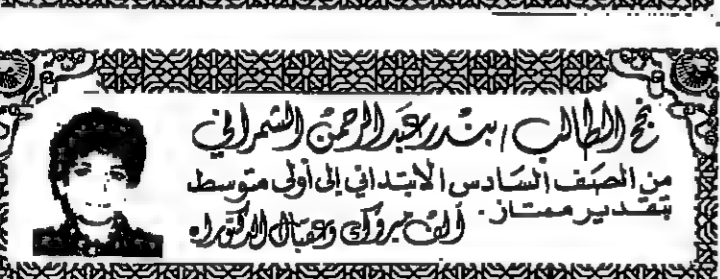 نجح الطالب / بندر عبدالرحمن الشمراني
من الصف السادس الابتدائي إلى أولى متوسط
بتقدير ممتاز. ألف مبروك وعقبال الدكتوراه